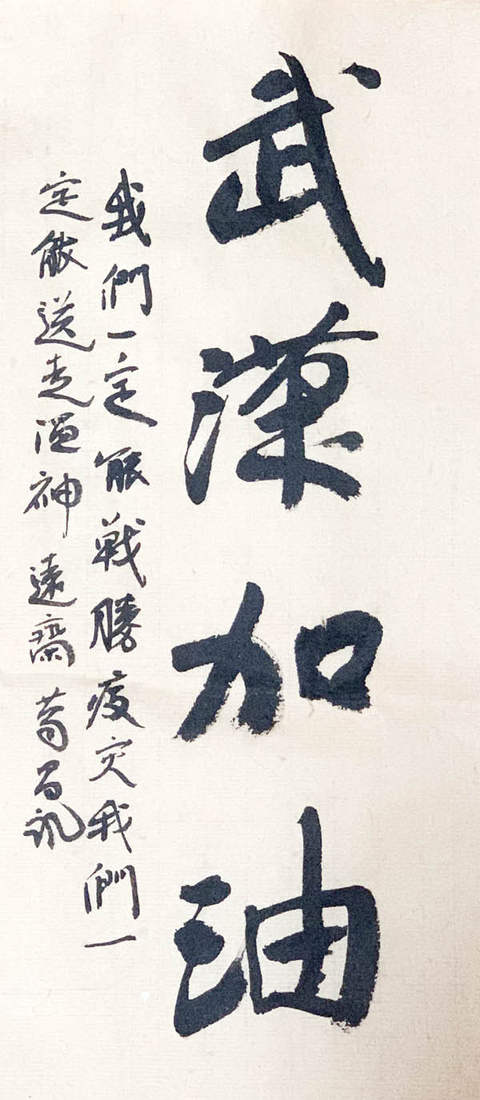 武漢加油
我們一定能戰勝疫灾我們一
定能送走温神 遠齋